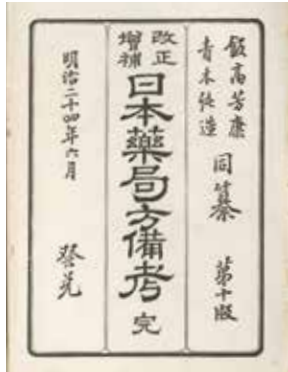 飯高芳康
青木純造
同纂 第十版
改正
增補
日本藥局方備考 完
明治二十四年六月 發兌